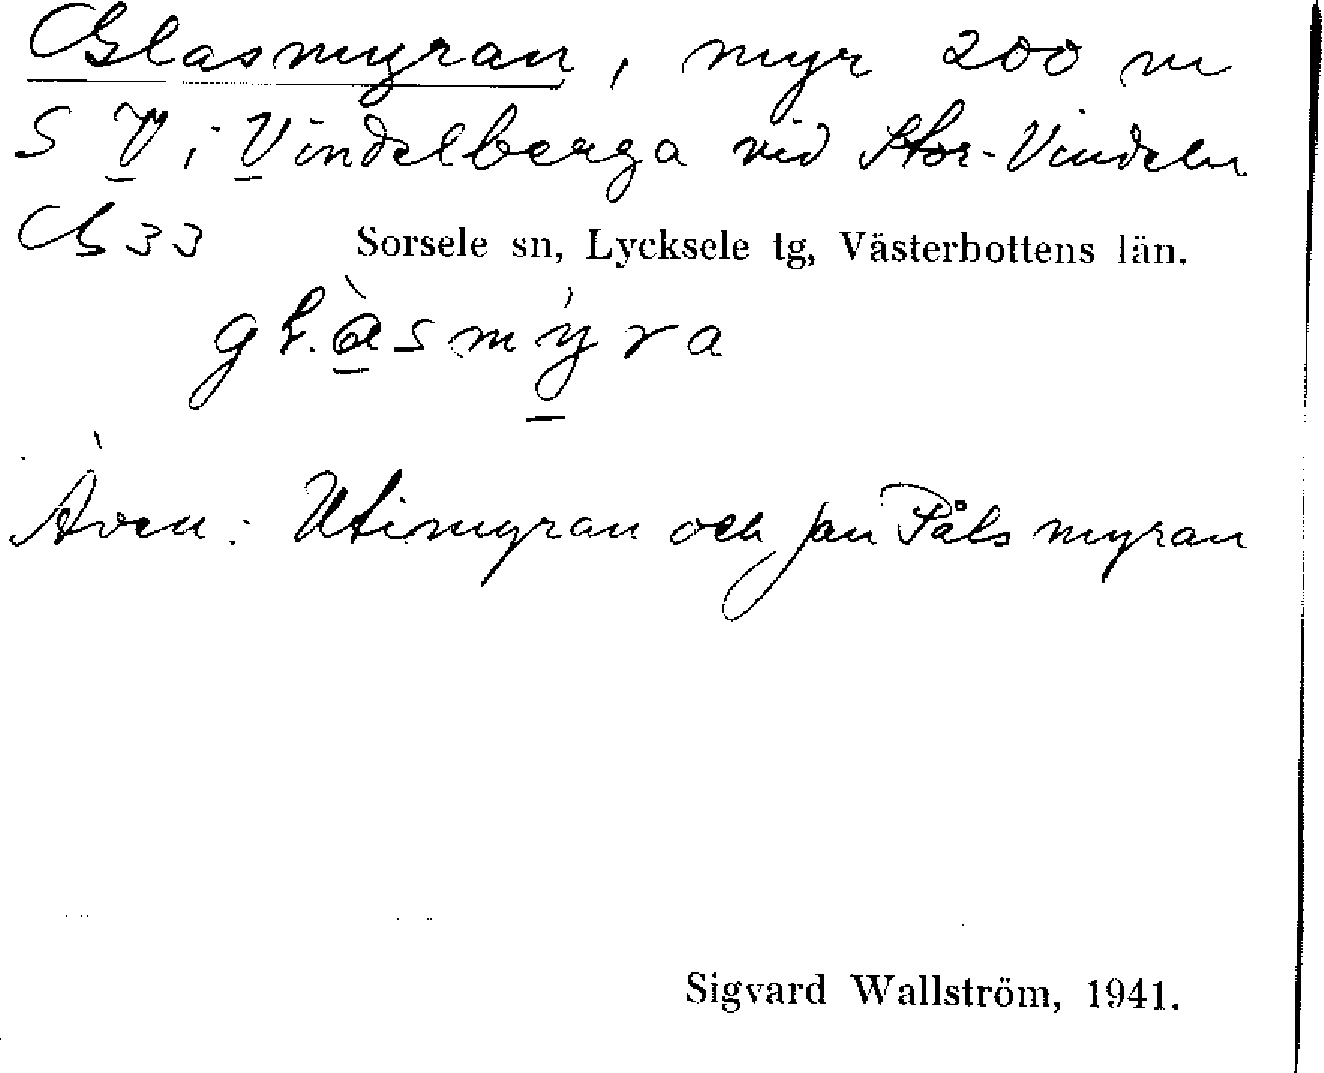 Glasmyran, myr 200 m
S V i Vindelberga vid Stor-Vindeln
Cb 33 Sorsele sn, Lycksele tg, Västerbottens län.
gL.àsmýra
Även: Utimyran och Jan Pålsmyran
Sigvard Wallström, 1941.